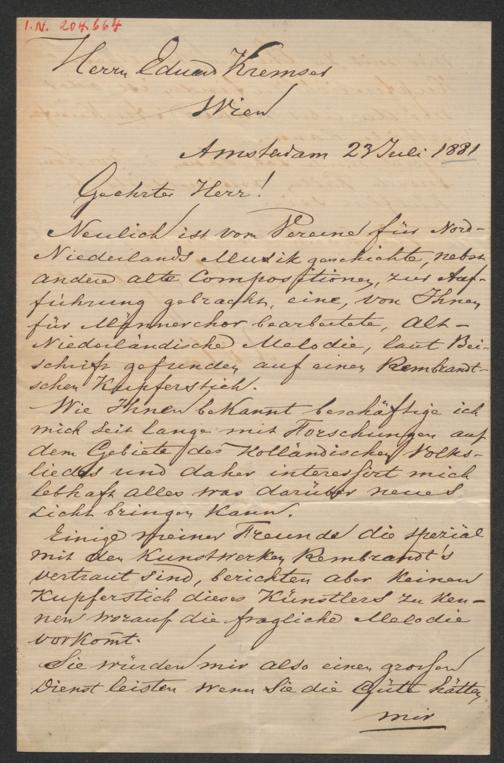 I.N. 204.664
Herrn Eduard Kremser
Wien
Amsterdam 23 Juli 1881
Geehrter Herr!
Neulich ist vom Vereine für Nord-
Niederlands Musikgeschichte, nebst
andere alte Compositionen, zur Auf-
führung gebracht, eine, von Ihnen
für Männerchor bearbeitete, Alt-
Niederländische Melodie, laut Bei-
schrift gefunden auf einen Rembrandt-
schen Kupferstich.
Wie Ihnen bekannt beschäftige ich
mich seit lange mit Forschungen auf
dem Gebiete des Holländischen Volks-
liedes und daher interessirt mich
lebhaft alles was darüber neues
Licht bringen kann.
Einige meiner Freunde die spezial
mit den Kunstwerken Rembrandt's
vertraut sind, berichten aber keinen
Kupferstich dieses Künstlers zu ken-
nen worauf die fragliche Melodie
vorkom̅t.
Sie würden mir also einen grossen
Dienst leisten wenn Sie die Güte hätten
mir